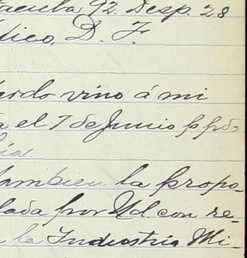 Tacuba 92. Desp. 28
xico, D. F.
vino á mi
el 7 de Junio ppdo
tambien la propo
lada por Ud con re-
la Industria Mi-